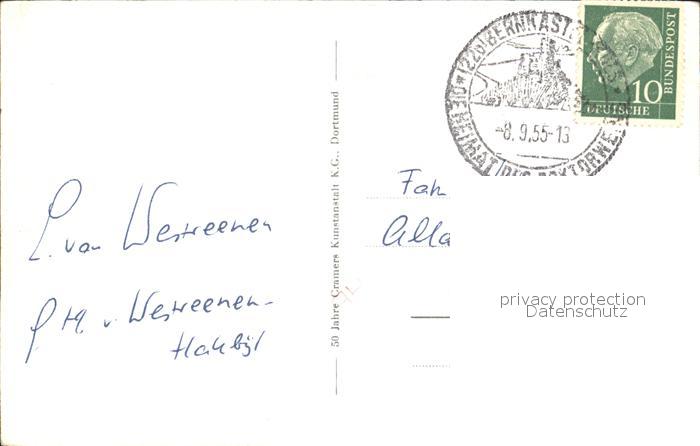 L. van Westreenen
P M. v. Westreenen-
Hakbijl
50 Jahre Cramers Kunstanstalt K.G., Dortmund
(22b) BERNKASTEL-KUES
DIE HEIMAT DES DOKTORWEINES
-8.9.55-13
10
DEUTSCHE
BUNDESPOST
Fah
Alla
privacy protection
Datenschutz